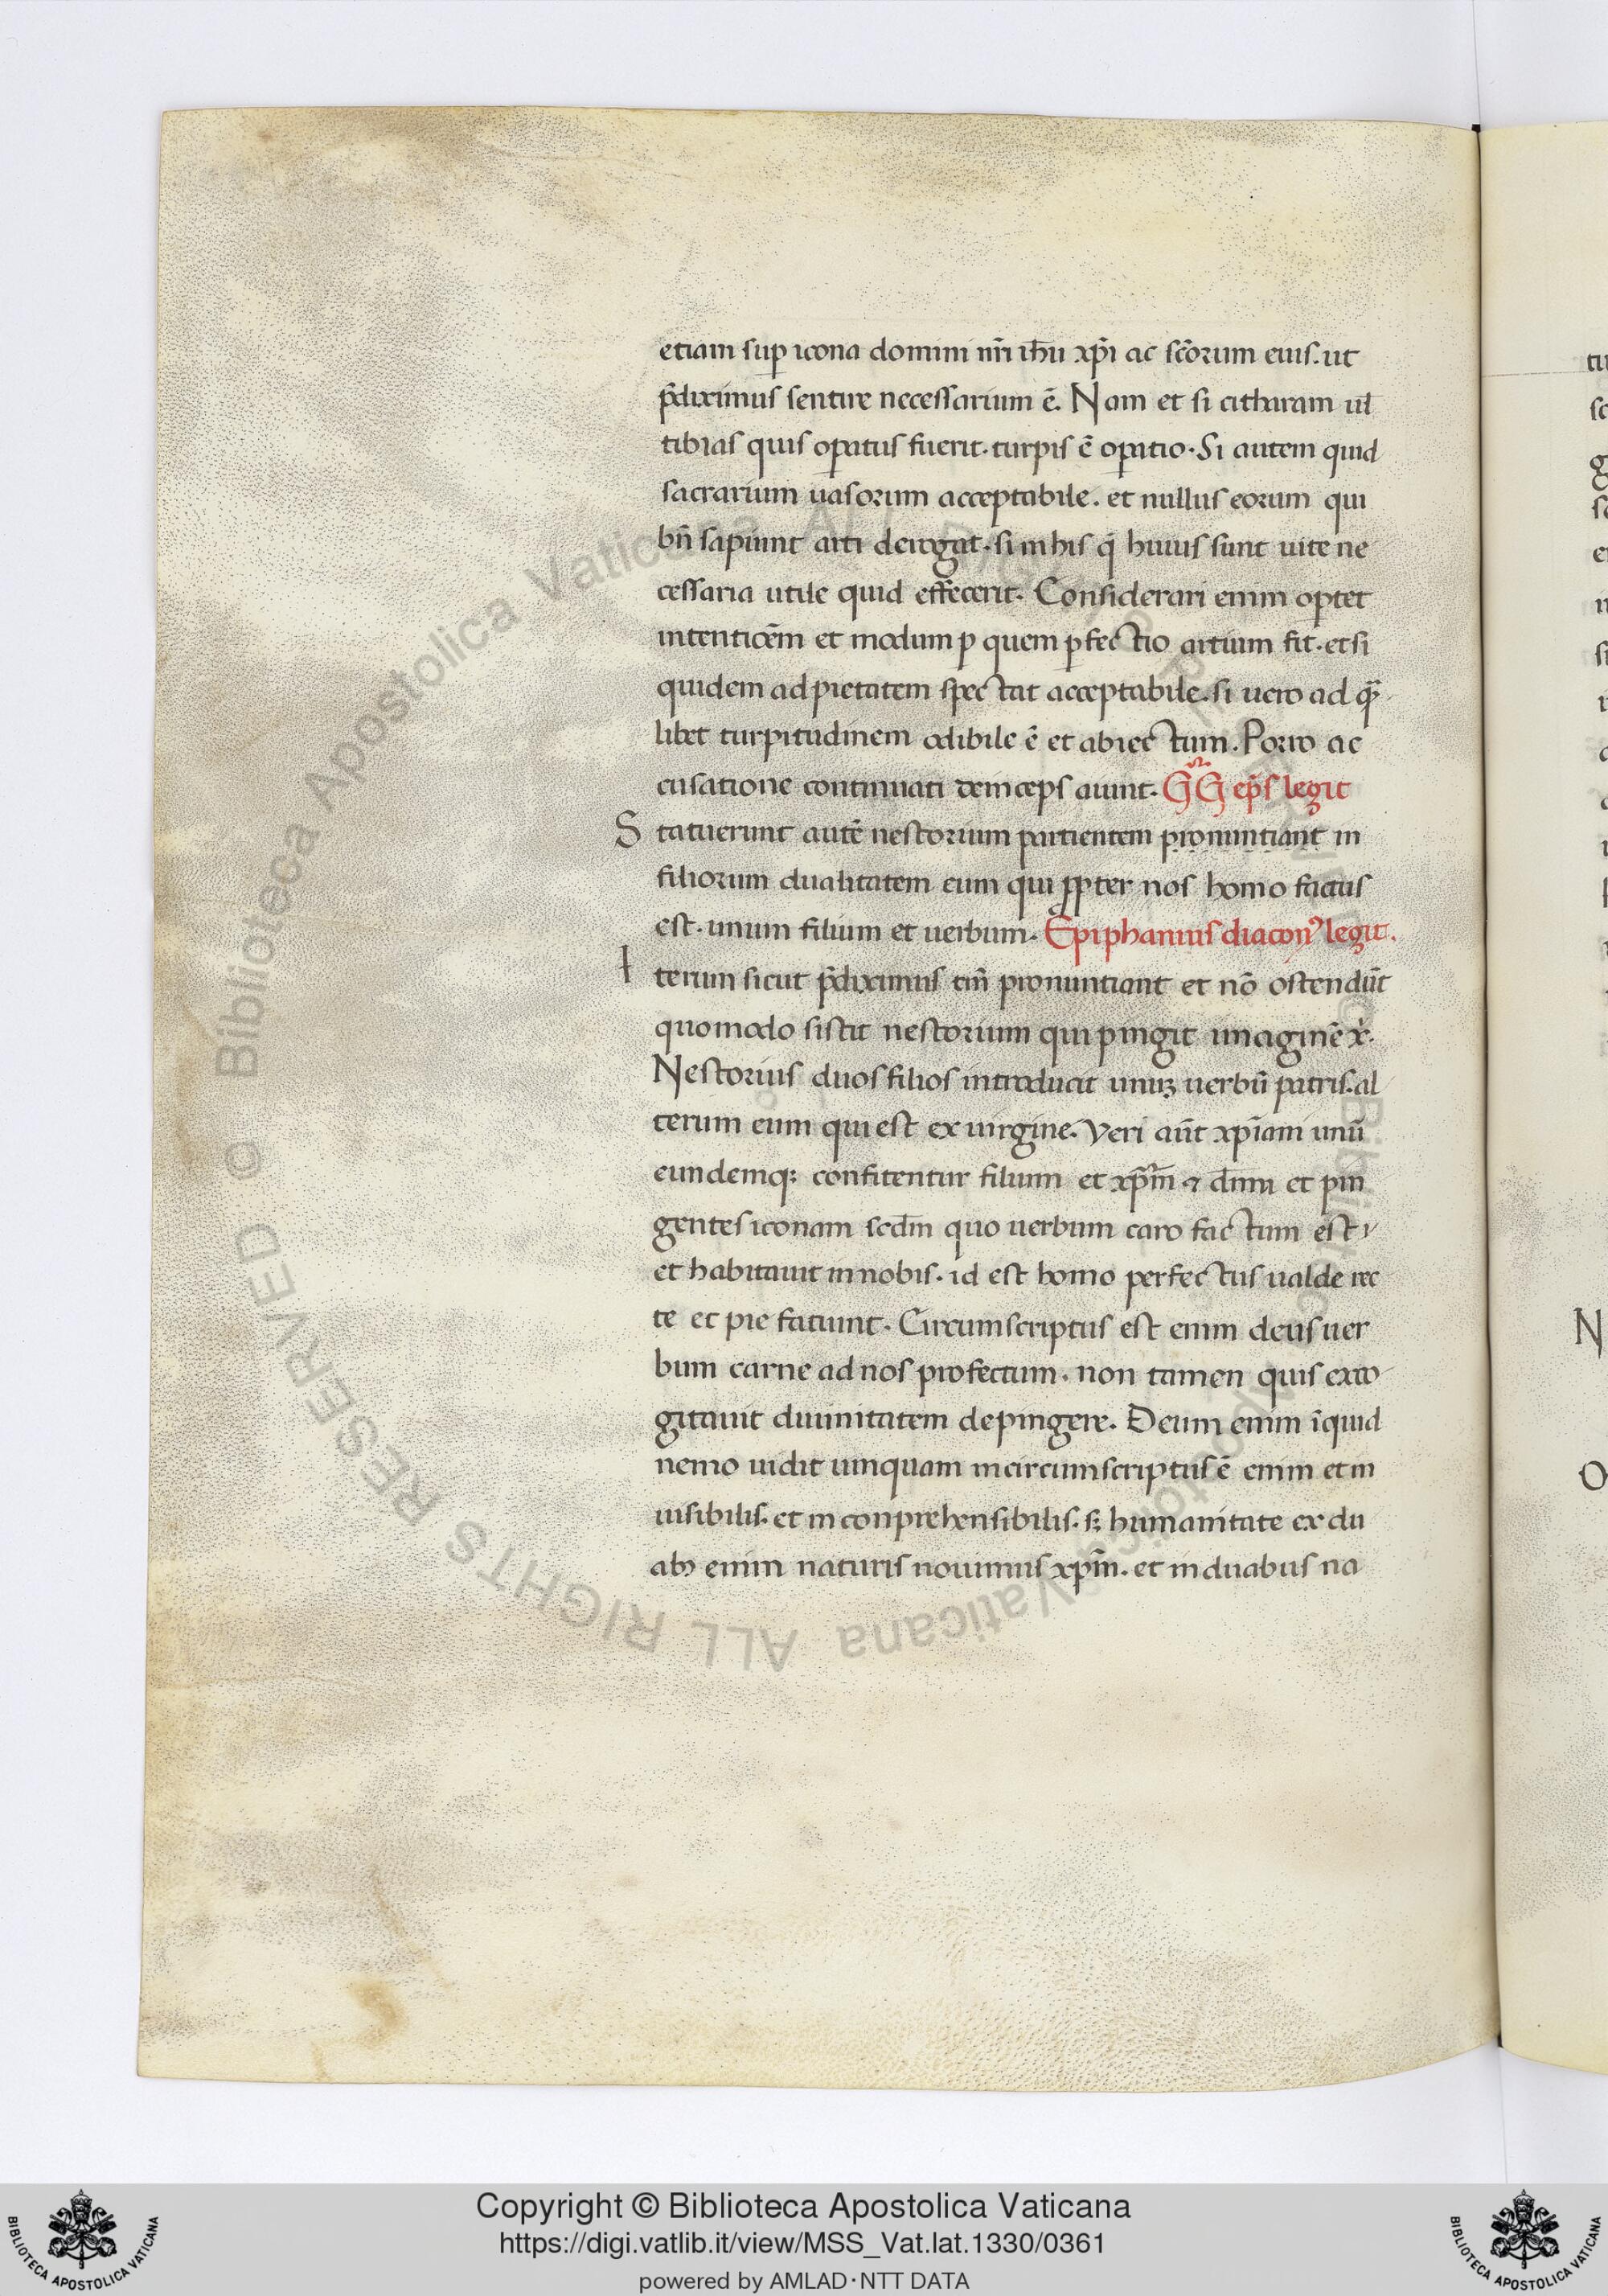 etiam sup icona domini nr̄i ih̄u xp̄i ac sc̄orum eius. ut
p̄diximus sentire necessarium ē. Nam et si citharam ul
tibias quis opatus fuerit. turpis ē opatio. Si autem quid
sacrarium uasorum acceptabile. et nullus eorum qui
bn̄ sapiunt arti derogat. si in his q̄ huius sunt uite ne
cessaria utile quid effecerit. Considerari enim optet
intentiōem et modum p quem pfectio artium fit. et si
quidem ad pietatem spectat acceptabile. si uero ad q̄
libet turpitudinem odibile ē et abiectum. Porro ac
cusatione continuati deinceps aiunt. GG ep̄s legit
Statuerunt autē nestorium partientem pronuntiant in
filiorum dualitatem eum qui ppter nos homo factus
est. unum filium et uerbum. Epiphanius diacon⁹ legit.
Iterum sicut p̄diximus tm̄ pronuntiant et nō ostendūt
quomodo sistit nestorium qui pingit imaginē x̄.
Nestorius duos filios introducit unuꝫ uerbū patris. al
terum eum qui est ex uirgine. Veri aūt xp̄iani unū
eundemqꝫ confitentur filium et xp̄m ⁊ dn̄m et pin
gentes iconam scd̄m quo uerbum caro factum est
et habitauit in nobis. id est homo perfectus ualde rec
te et pie fatiunt. Circumscriptus est enim deus uer
bum carne ad nos profectum. non tamen quis exco
gitauit diuinitatem depingere. Deum enim īquid
nemo uidit umquam incircumscriptus ē enim et in
uisibilis. et inconprehensibilis. sꝫ humanitate ex du
abꝫ enim naturis nouimus xp̄m. et in duabus na
tu
N
O
© Biblioteca Apostolica Vaticana ALL RIGHTS RESERVED
Copyright © Biblioteca Apostolica Vaticana
https://digi.vatlib.it/view/MSS_Vat.lat.1330/0361
powered by AMLAD·NTT DATA
BIBLIOTECA APOSTOLICA VATICANA
BIBLIOTECA APOSTOLICA VATICANA